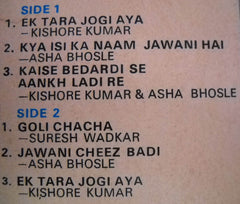 SIDE 1
1. EK TARA JOGI AYA
–KISHORE KUMAR
2. KYA ISI KA NAAM JAWANI HAI
–ASHA BHOSLE
3. KAISE BEDARDI SE
AANKH LADI RE
–KISHORE KUMAR & ASHA BHOSLE
SIDE 2
1. GOLI CHACHA
–SURESH WADKAR
2. JAWANI CHEEZ BADI
–ASHA BHOSLE
3. EK TARA JOGI AYA
–KISHORE KUMAR